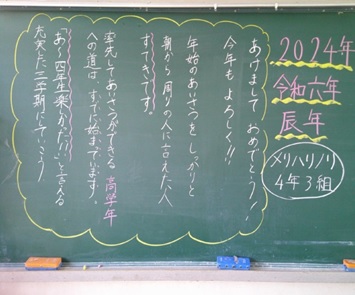 2024年
令和六年
辰年
メリハリノリ
4年3組
あけまして おめでとう!!
今年もよろしく!!
年始のあいさつを しっかりと
朝から周りの人に言えた人
すてきです。
率先してあいさつができる 高学年
への道は すでに始まっています。
「あ〜四年生楽しかった!!」と言える
充実した三学期にしていこう!